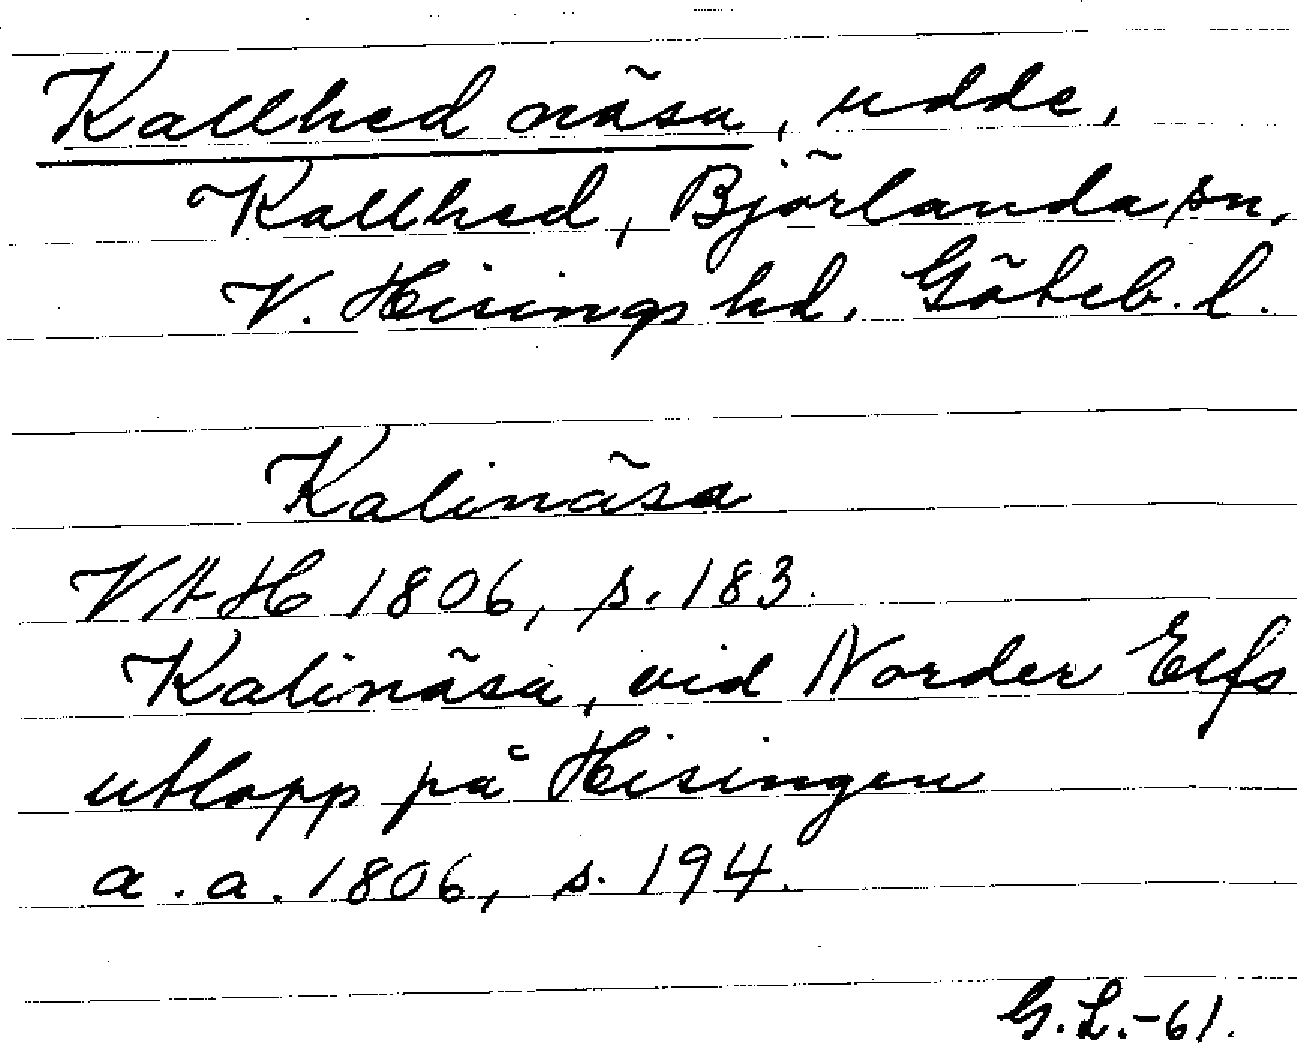 Kallhed näsa, udde,
Kallhed, Björlanda sn,
V. Hisings hd, Göteb. l.
Kalinäsa
VAH 1806, s. 183.
Kalinäsa, vid Norder Elfs
utlopp på Hisingen
a. a. 1806, s. 194.
G. L. -61.